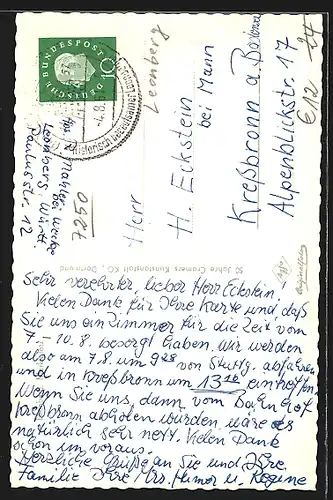 DEUTSCHE BUNDESPOST
10
Leonberg
Herr
H. Eckstein
bei Mann
Kreßbronn a. Bodensee
Alpenblickstr. 17
€12
0527
Abs. Mahler
bei
Leonberg, Württ.
Paulusstr. 12
50 Jahre Cramers Kunstanstalt KG., Dortmund
Sehr verehrter, lieber Herr Eckstein!
Vielen Dank für Ihre Karte und daß
Sie uns ein Zimmer für die Zeit vom
– 10.8. besorgt haben. Wir werden
also am 7.8. um 9²⁸ von Stuttg. abfahren
und in Kreßbronn um 13¹⁶ eintreffen.
Wenn Sie uns dann vom Bahnhof
Kreßbronn abholen würden, wäre es
natürlich sehr nett. Vielen Dank
schon im voraus.
Herzliche Grüße an Sie und Ihre
Familie Ihre Mrs. Humor u. Regine